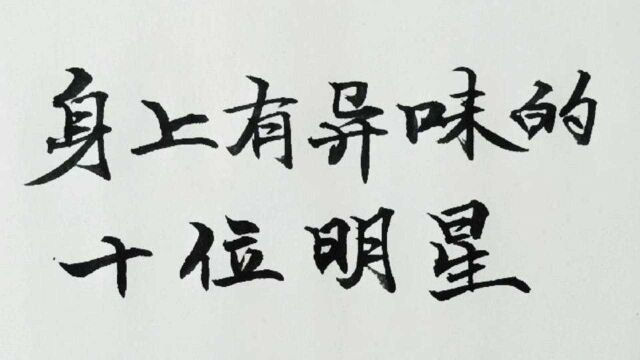 身上有异味的
十位明星